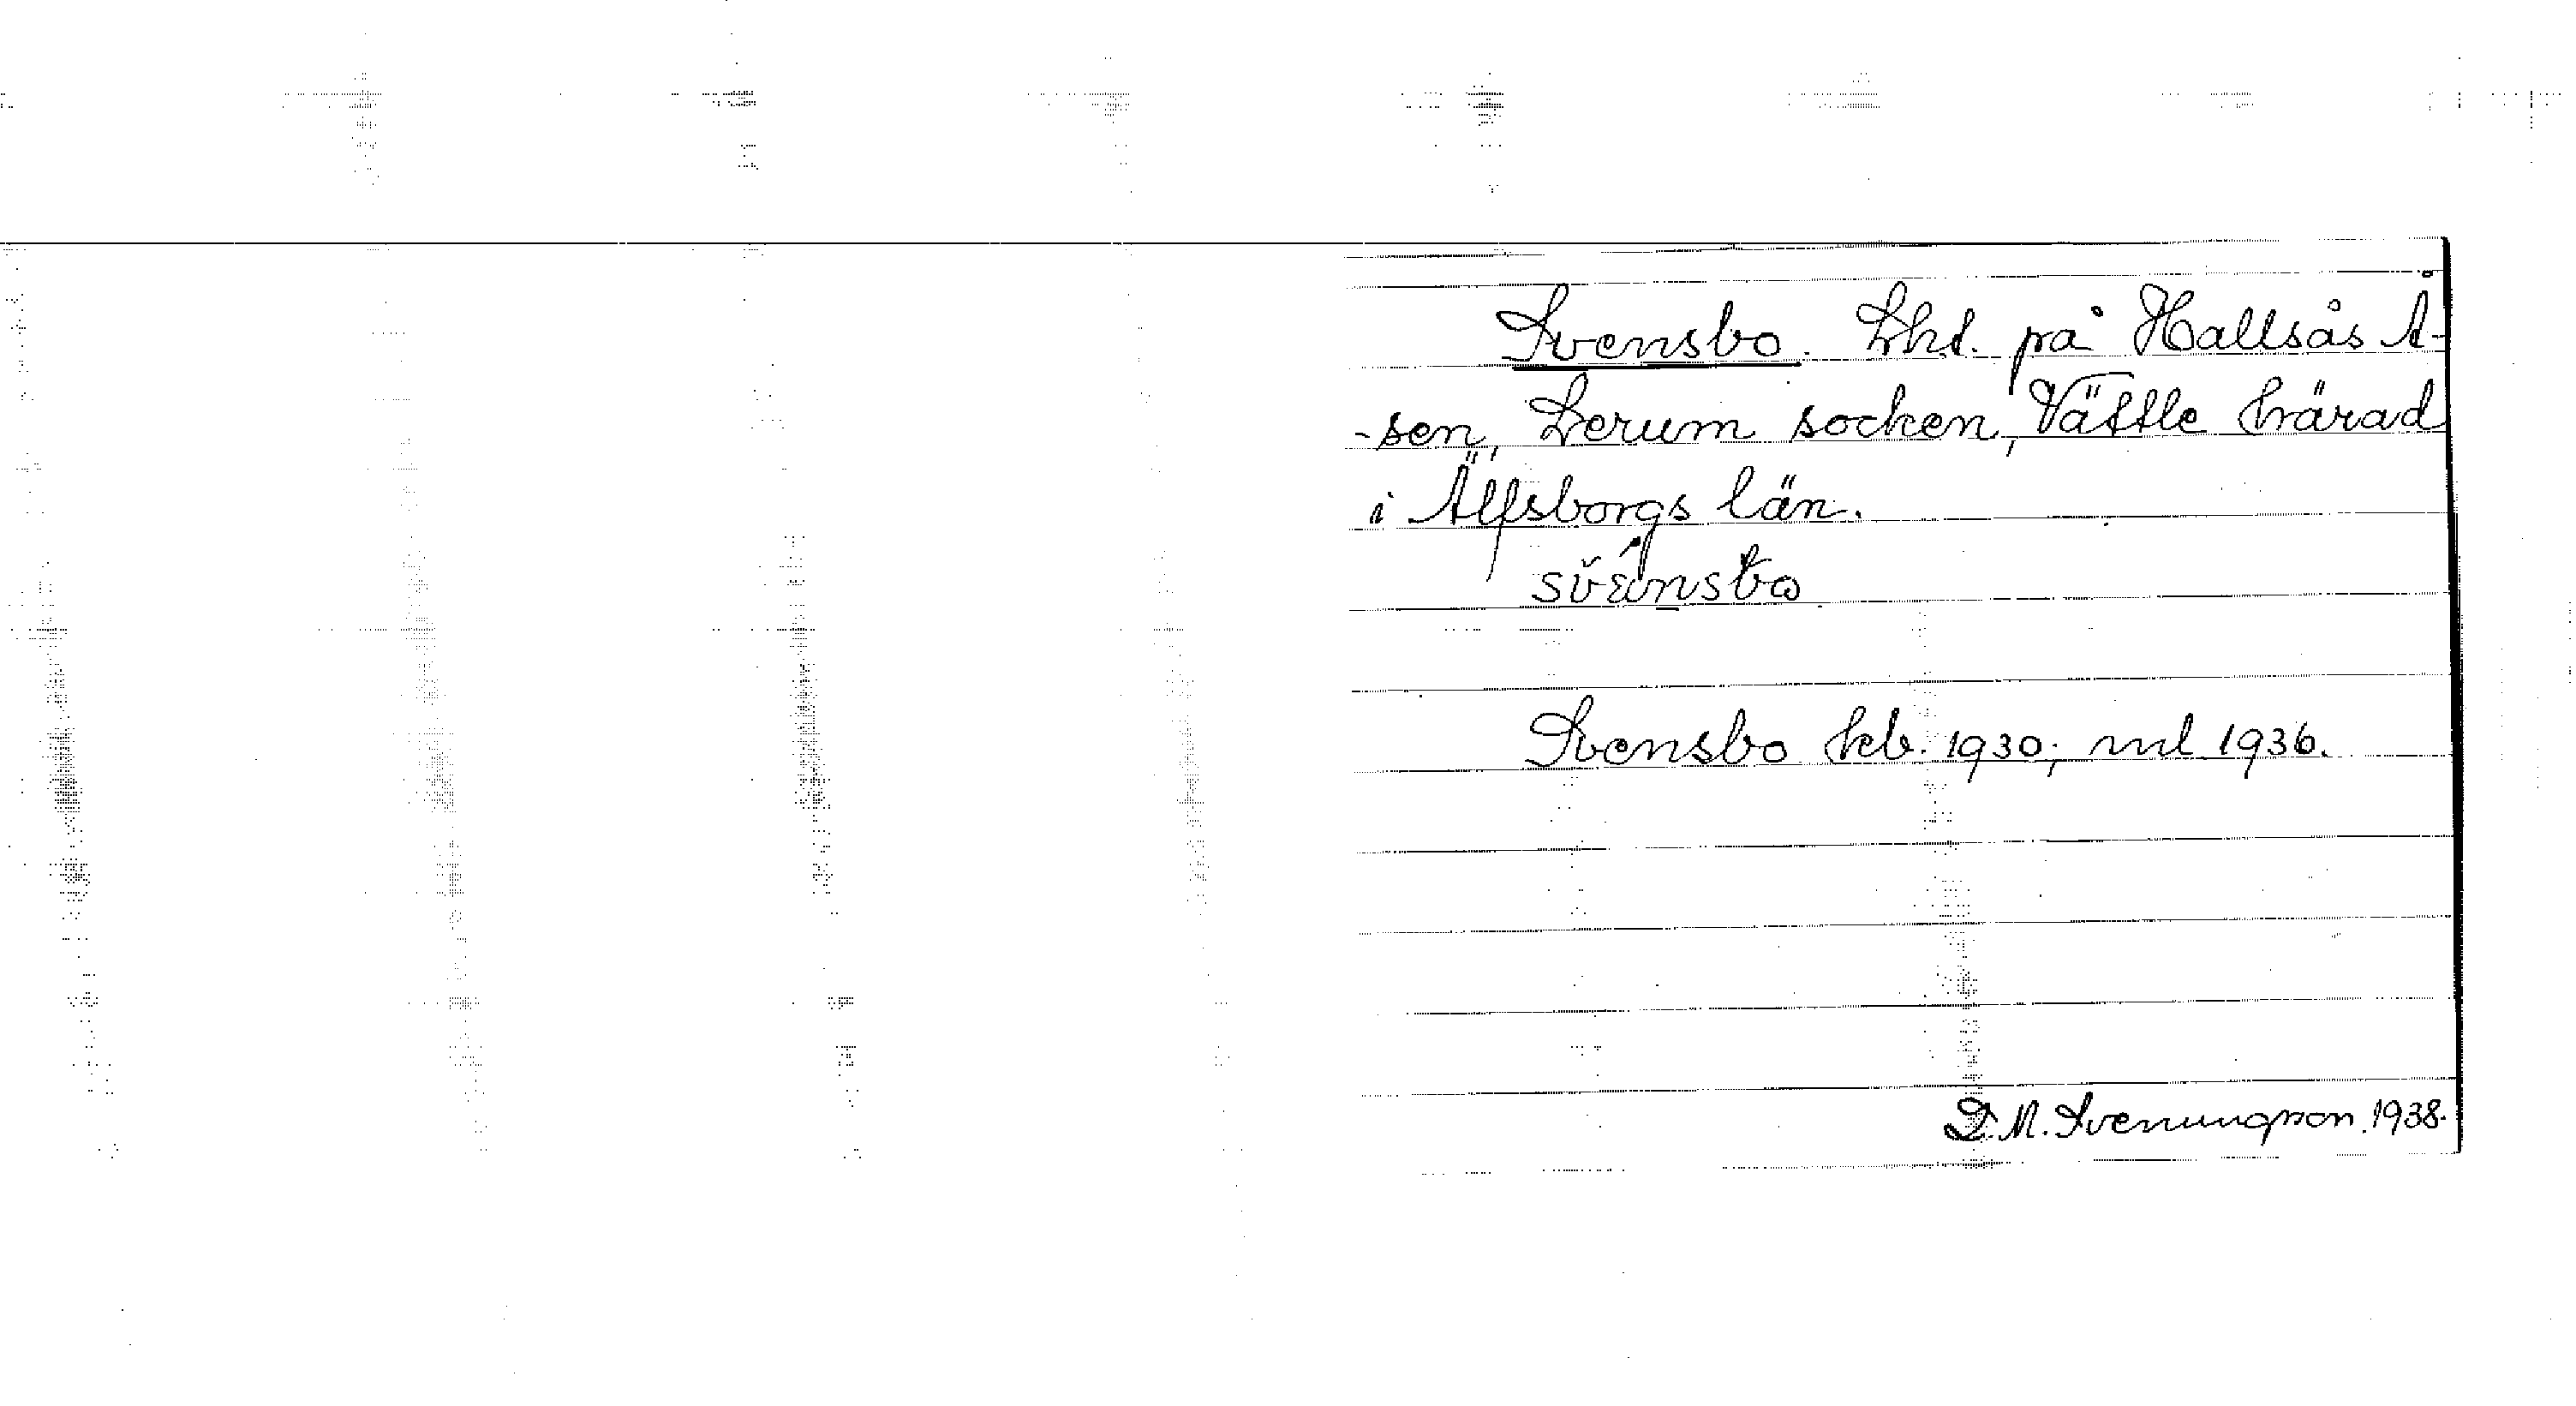 Svensbo. Lht. på Hallsås Å-
-sen, Lerum socken, Vättle härad
i Älfsborgs län.
Svensbo kb. 1930; ml 1936.
D. M. Svenungson 1938.